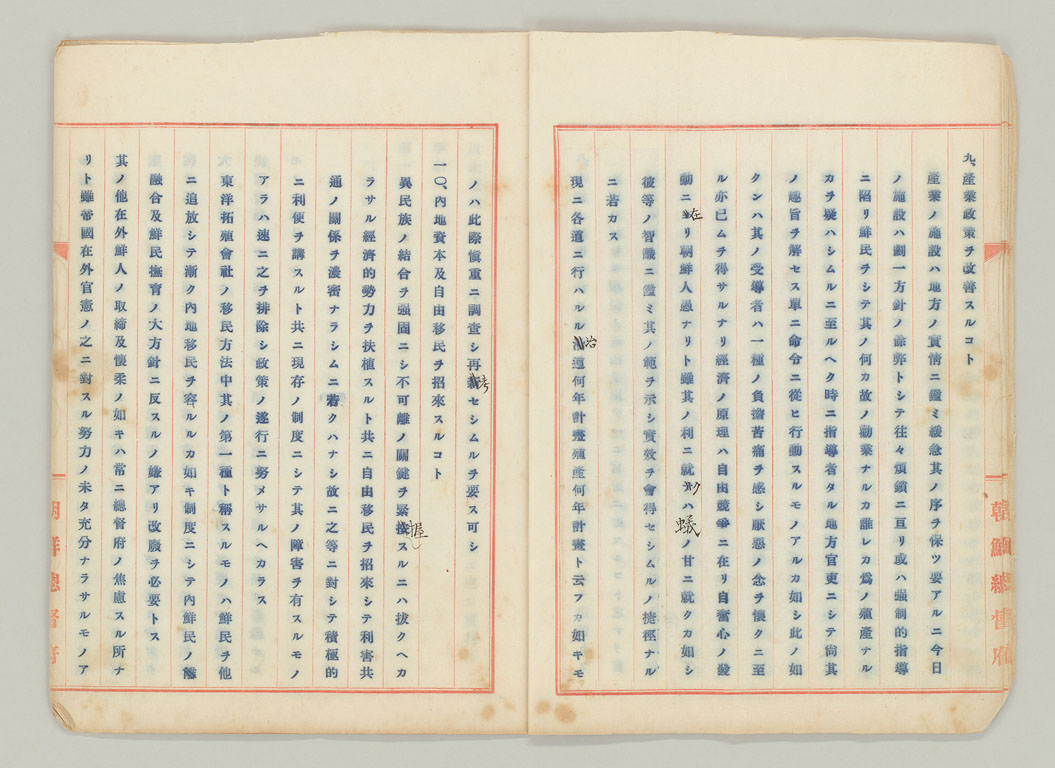 九、產業政策ヲ改善スルコト
產業ノ施設ハ地方ノ實情ニ鑑ミ緩急其ノ序ヲ保ツ要アルニ今日
ノ施設ハ劃一方針ノ餘弊トシテ往々煩鎖ニ亘リ或ハ强制的指導
ニ陷リ鮮民ヲシテ其ノ何カ故ノ勸業ナルカ誰レカ爲ノ殖產ナル
カヲ疑ハシムルニ至ルヘク時ニ指導者タル地方官吏ニシテ尙其
ノ趣旨ヲ解セス單ニ命令ニ從ヒ行動スルモノアルカ如シ此ノ如
クンハ其ノ受導者ハ一種ノ負擔苦痛ヲ感シ厭惡ノ念ヲ懷クニ至
ル亦已ムヲ得サルナリ經濟ノ原理ハ自由競爭ニ在リ自奮心ノ發
動ニ在リ朝鮮人愚ナリト雖其ノ利ニ就クハ蟻ノ甘ニ就クカ如シ
彼等ノ智識ニ鑑ミ其ノ範ヲ示シ實效ヲ會得セシムルノ捷徑ナル
ニ若カス
現ニ各道ニ行ハルル治道何年計畫殖產何年計畫ト云フカ如キモ
ノハ此際愼重ニ調查シ再考セシムルヲ要ス可シ
一〇、內地資本及自由移民ヲ招來スルコト
異民族ノ結合ヲ强固ニシ不可離ノ關鍵ヲ緊握スルニハ拔クヘカ
ラサル經濟的勢力ヲ扶植スルト共ニ自由移民ヲ招來シテ利害共
通ノ關係ヲ濃密ナラシムニ若クハナシ故ニ之等ニ對シテ積極的
ニ利便ヲ講スルト共ニ現存ノ制度ニシテ其ノ障害ヲ有スルモノ
アラハ速ニ之ヲ排除シ政策ノ遂行ニ努メサルヘカラス
東洋拓殖會社ノ移民方法中其ノ第一種ト稱スルモノハ鮮民ヲ他
ニ追放シテ漸ク內地移民ヲ容ルルカ如キ制度ニシテ內鮮民ノ
融合及鮮民撫育ノ大方針ニ反スルノ嫌アリ改廢ヲ必要トス
其ノ他在外鮮人ノ取締及懷柔ノ如キハ常ニ總督府ノ焦慮スル所ナ
リト雖帝國在外官憲ノ之ニ對スル努力ノ未タ充分ナラサルモノア
朝鮮總督府
朝鮮總督府